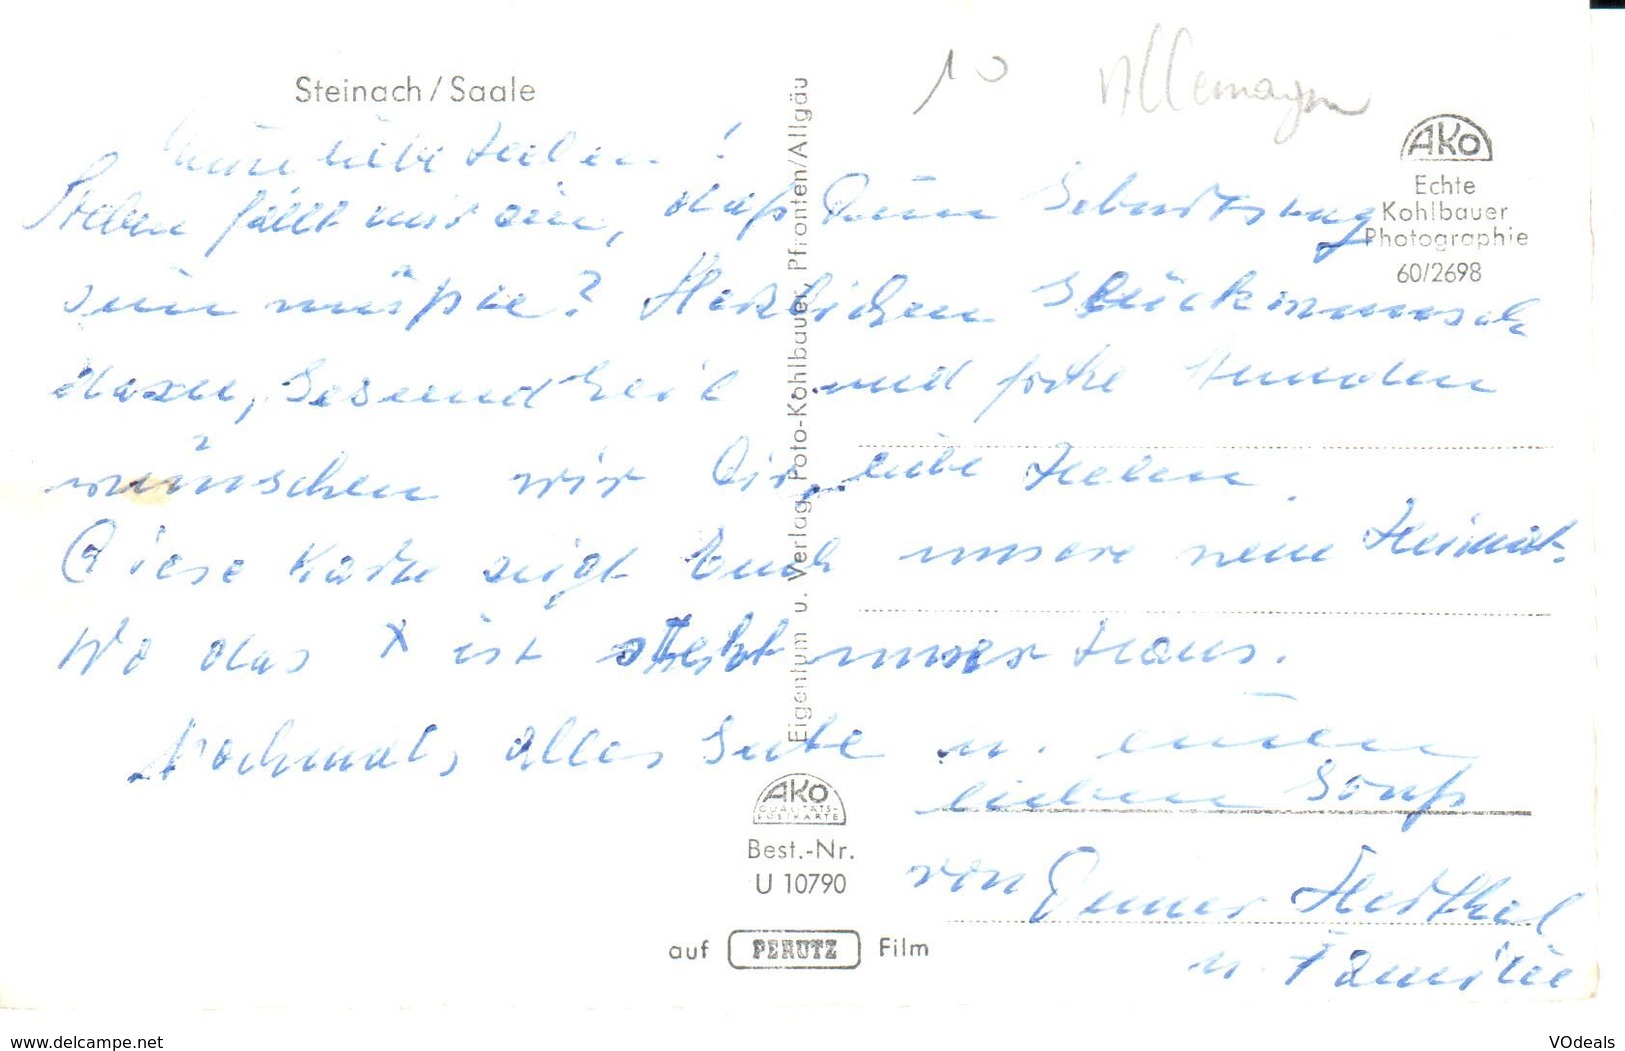 10 Allemagne
Steinach / Saale
AKO
Echte
Kohlbauer
Photographie
60/2698
Meine liebe Helen!
Soeben fällt mir ein, daß Dein Geburtstag
sein müßte? Herzlichen Glückwunsch
dazu, Gesundheit und frohe Stunden
wünschen wir Dir, liebe Helen.
Diese Karte zeigt Euch unsere neue Heimat.
Wo das X ist steht unser Haus.
Nochmals alles Gute u. einen
lieben Gruß
von Herthel
u. Familie
Eigentum u. Verlag Foto-Kohlbauer, Pfronten/Allgäu
AKO
QUALITÄTS-
POSTKARTE
Best.-Nr.
U 10790
auf PERUTZ Film
www.delcampe.net
VOdeals